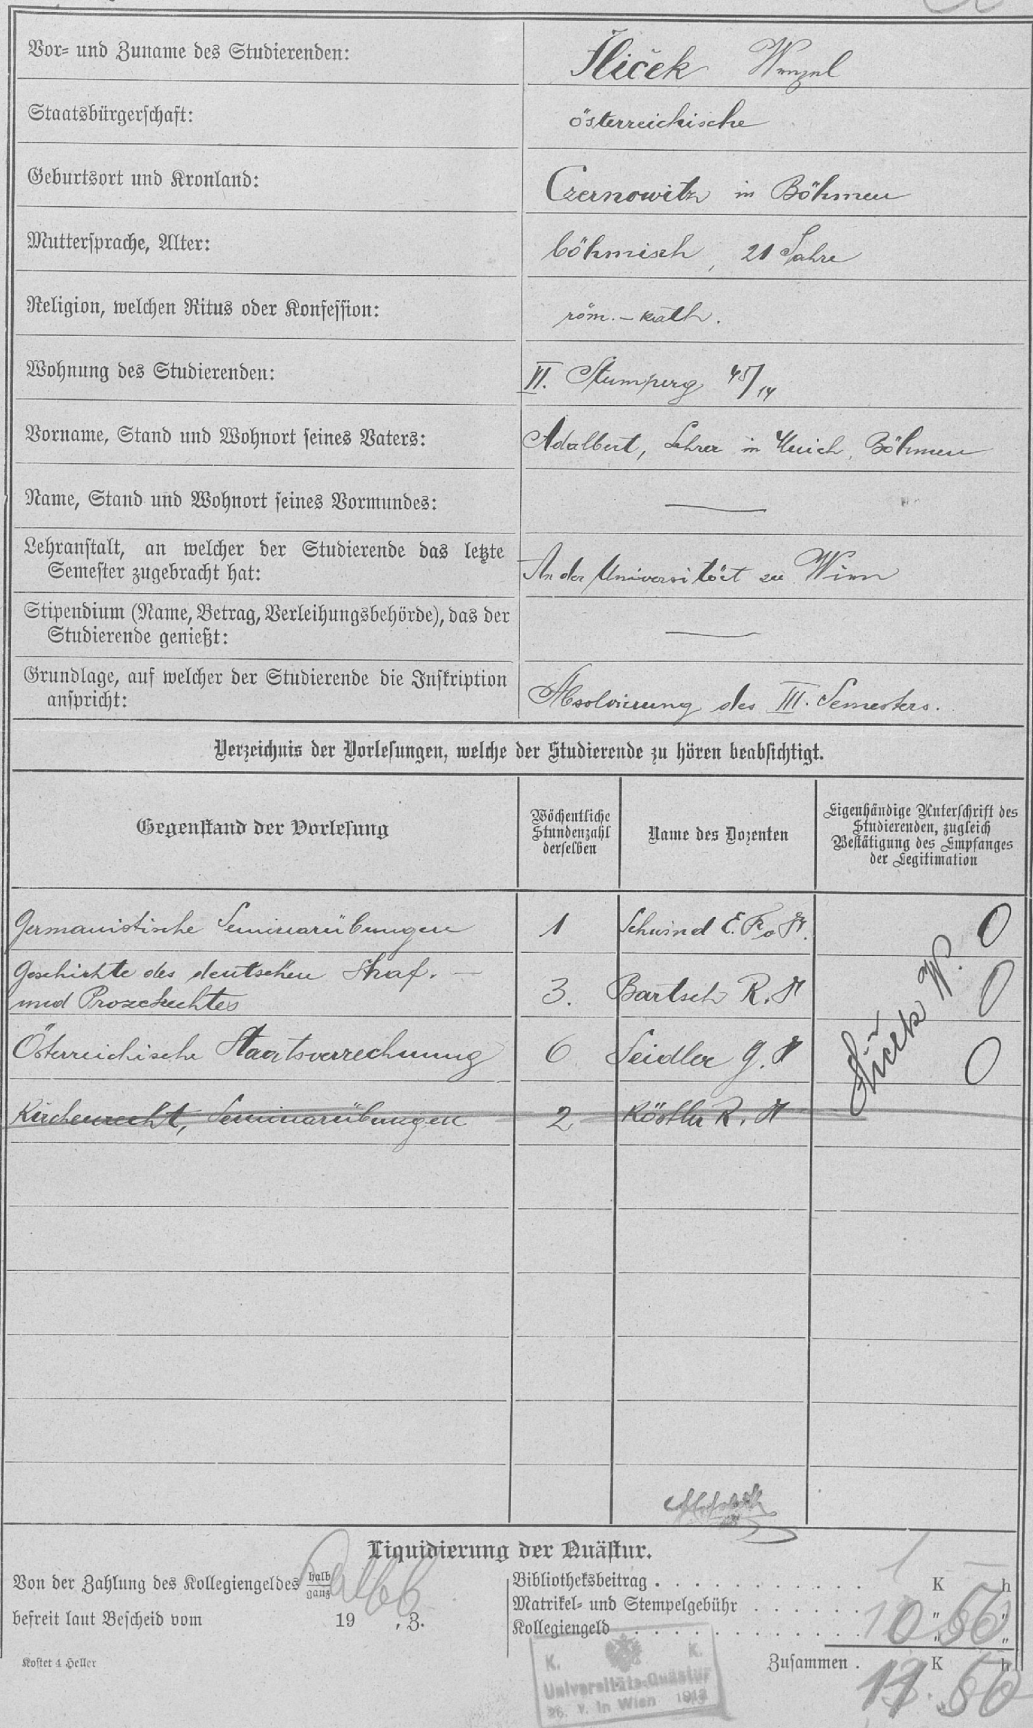 Vor- und Zuname des Studierenden: Jlíček Wenzel
Staatsbürgerschaft: österreichische
Geburtsort und Kronland: Czernowitz in Böhmen
Muttersprache, Alter: böhmisch, 21 Jahre
Religion, welchen Ritus oder Konfession: röm.-kath.
Wohnung des Studierenden: VI. Stumperg 45/14
Vorname, Stand und Wohnort seines Vaters: Adalbert, Lehrer in Böhmen
Name, Stand und Wohnort seines Vormundes: —
Lehranstalt, an welcher der Studierende das letzte
Semester zugebracht hat: An der Universität zu Wien
Stipendium (Name, Betrag, Verleihungsbehörde), das der
Studierende genießt: —
Grundlage, auf welcher der Studierende die Inskription
anspricht: Absolvierung des III. Semesters.
Verzeichnis der Vorlesungen, welche der Studierende zu hören beabsichtigt.
Gegenstand der Vorlesung
Wöchentliche
Stundenzahl
derselben
Name des Dozenten
Eigenhändige Unterschrift des
Studierenden, zugleich
Bestätigung des Empfanges
der Legitimation
Germanistische Seminarübungen 1 Schwind E. 0
Geschichte des deutschen Straf. —
und Prozeßrechtes 3. Bartsch R. 0
Österreichische Staatsverrechnung 6 Seidler G. 0
Kirchenrecht, Seminarübungen 2 Köstler R.
Jlíček W.
Liquidierung der Quästur.
Von der Zahlung des Kollegiengeldes halb
ganz halb
befreit laut Bescheid vom 19 , 3.
Bibliotheksbeitrag . . . 1 K — h
Matrikel- und Stempelgebühr . . . " "
Kollegiengeld . . . 10 " 50 "
Zusammen . 11 K 50 h
Kostet 4 Heller
K. K.
Universitäts-Quästur
26. V. in Wien 1913